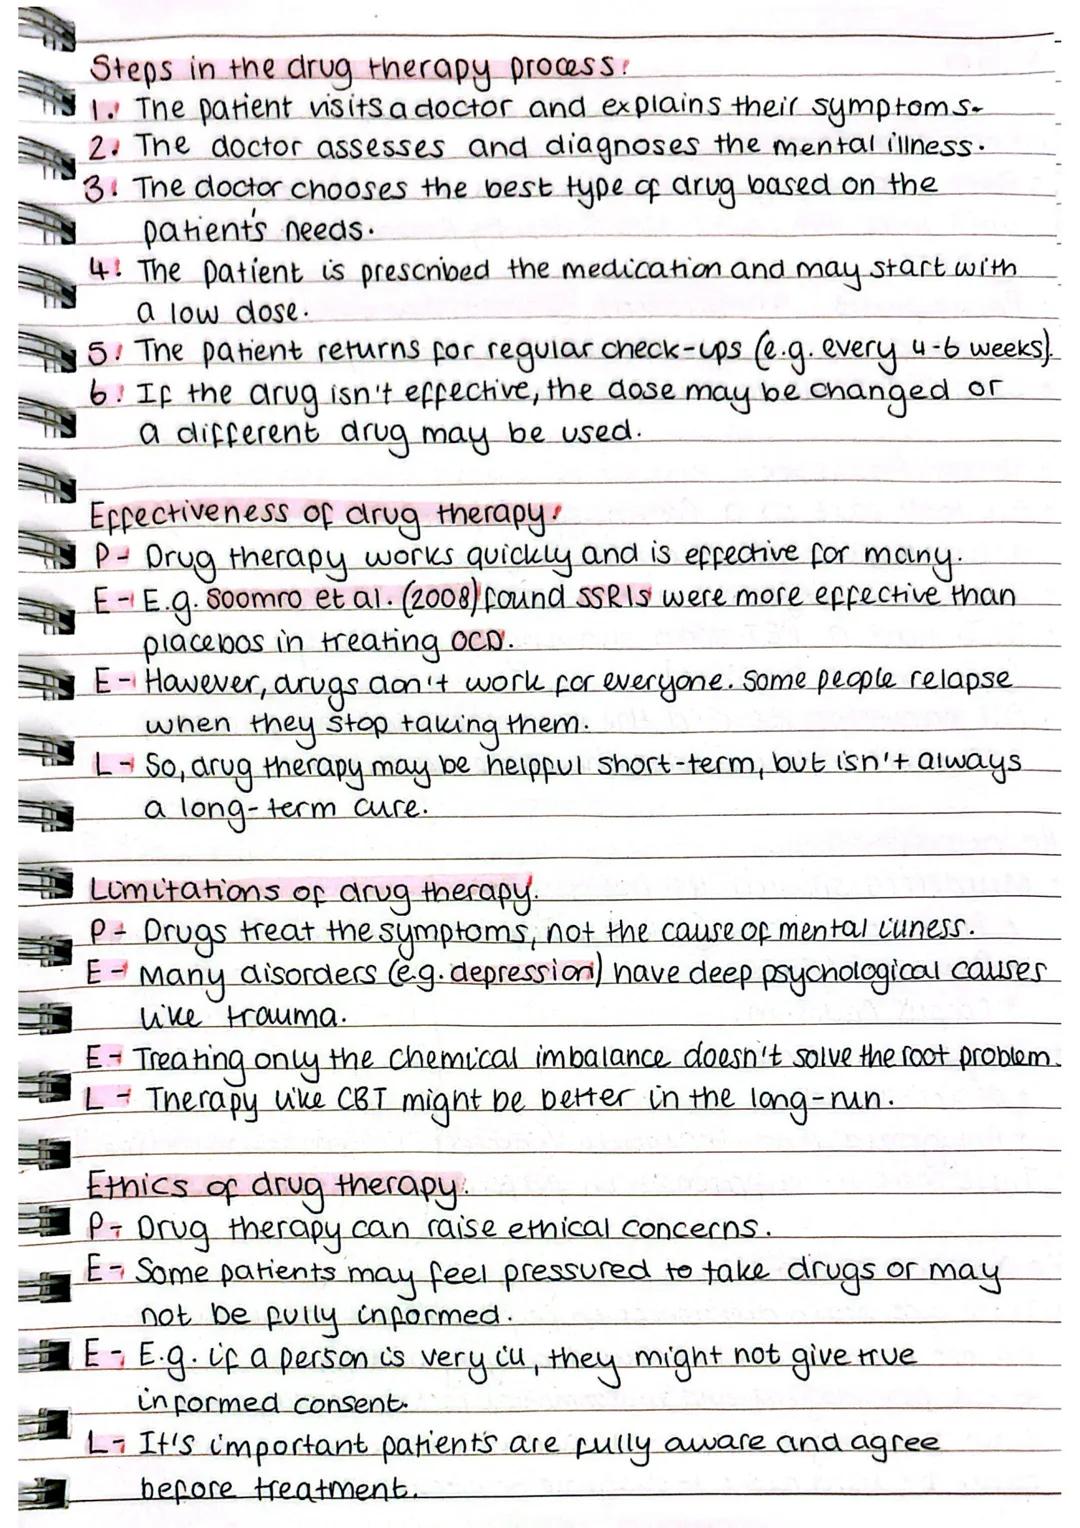 Steps in the drug therapy process:
1. The patient visits a doctor and explains their symptoms.
2. The doctor assesses and diagnoses the mental illness.
3. The doctor chooses the best type of drug based on the
patient's needs.
4. The patient is prescribed the medication and may start with
a low dose.
5. The patient returns for regular check-ups (e.g. every 4-6 weeks).
6. If the drug isn't effective, the dose may be changed or
a different drug may be used.
Effectiveness of drug therapy:
P- Drug therapy works quickly and is effective for many.
E- E.g. Soomro et al. (2008) found SSRIs were more effective than
placebos in treating OCD.
E- However, drugs don't work for everyone. Some people relapse
when they stop taking them.
L- So, drug therapy may be helpful short-term, but isn't always
a long-term cure.
Limitations of drug therapy:
P- Drugs treat the symptoms, not the cause of mental illness.
E- Many disorders (e.g. depression) have deep psychological causes
like trauma.
E- Treating only the chemical imbalance doesn't solve the root problem.
L- Therapy like CBT might be better in the long-run.
Ethics of drug therapy:
P- Drug therapy can raise ethical concerns.
E- Some patients may feel pressured to take drugs or may
not be fully informed.
E- E.g. if a person is very ill, they might not give true
informed consent.
L- It's important patients are fully aware and agree
before treatment.